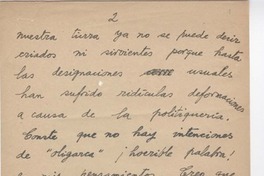 2
nuestra tierra ya no se puede decir
criados ni sirvientes porque hasta
las designaciones usuales
han sufrido ridículas deformaciones
a causa de la politiquería.
Conste que no hay intenciones
de "oligarca" ¡horrible palabra!
pensamientos. Creo que